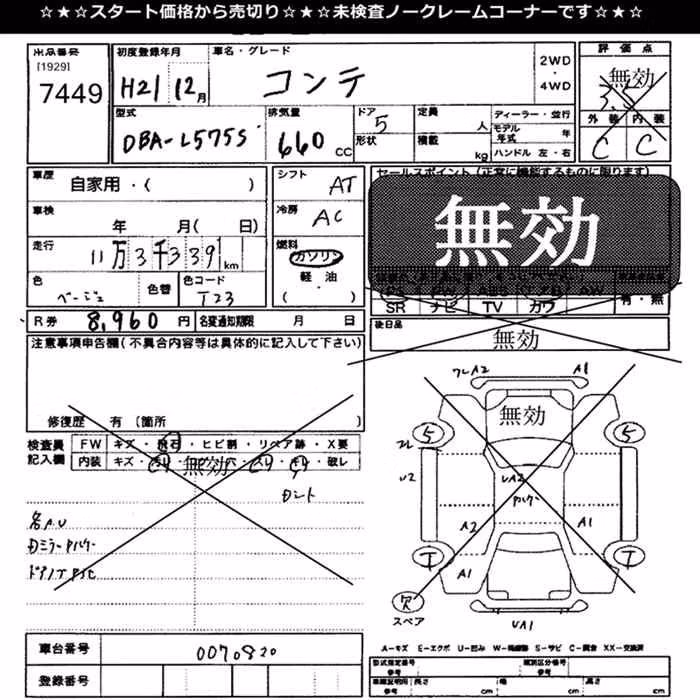 ☆★☆★スタート価格から売切り☆★☆★未検査ノークレームコーナーです☆★☆
出品番号
[1929]
7449
初度登録年月
H21 12月
車名・グレード
コンテ
2WD
・
4WD
評価点
無効
3.5
外装 内装
C C
型式
DBA-L575S
排気量
660 CC
ドア
5
形状
定員
人
積載
kg
ディーラー・並行
モデル年式 年
ハンドル 左・右
車歴
自家用・( )
車検
年 月( 日)
走行
11万3千339km
色
ベージュ
色替
色コード
T23
シフト
AT
冷房
AC
燃料
ガソリン
軽・油
( )
セールスポイント(正常に機能するものに限ります)
無効
PS PW ABS エアB AW
SR ナビ TV カワ
有・無
R券 8,960円 名変通知期限 月 日
後日品
無効
注意事項申告欄(不具合内容等は具体的に記入して下さい)
修復歴 有 (箇所 )
検査員記入欄
FW キズ・飛石・ヒビ割・リペア跡・X要
内装 キズ・無効・破レ
無効
A2 A1
5 5
U2
UA2
A2 A1
A1
欠
スペア
UA1
車台番号 0070820
登録番号
A-キズ E-エクボ U-凹ミ W-補修跡 S-サビ C-腐食 XX-交換済
型式指定番号
参考
類別区分番号
参考
車検証明用
参考
長さ cm 幅 cm 高さ cm